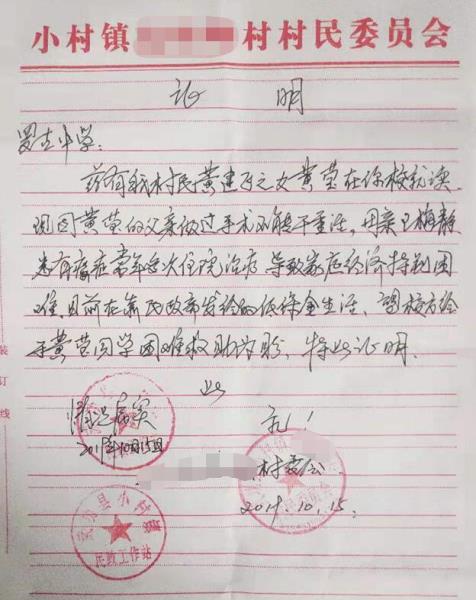 小村镇 村村民委员会
证 明
罗古中学：
兹有我村民黄建 之女黄莹在你校就读
现因黄莹的父亲做过手术不能干重活，母亲 梅静
患有癌症常年多次住院治疗导致家庭经济特别困
难，目前在靠民政部发给的低保金生活，望校方给
予黄莹同学困难救助为盼，特此证明。
此
礼！
情况属实
2019年10月15日
村委会
2019.10.15.
县小村镇
民政工作站
装 订 线